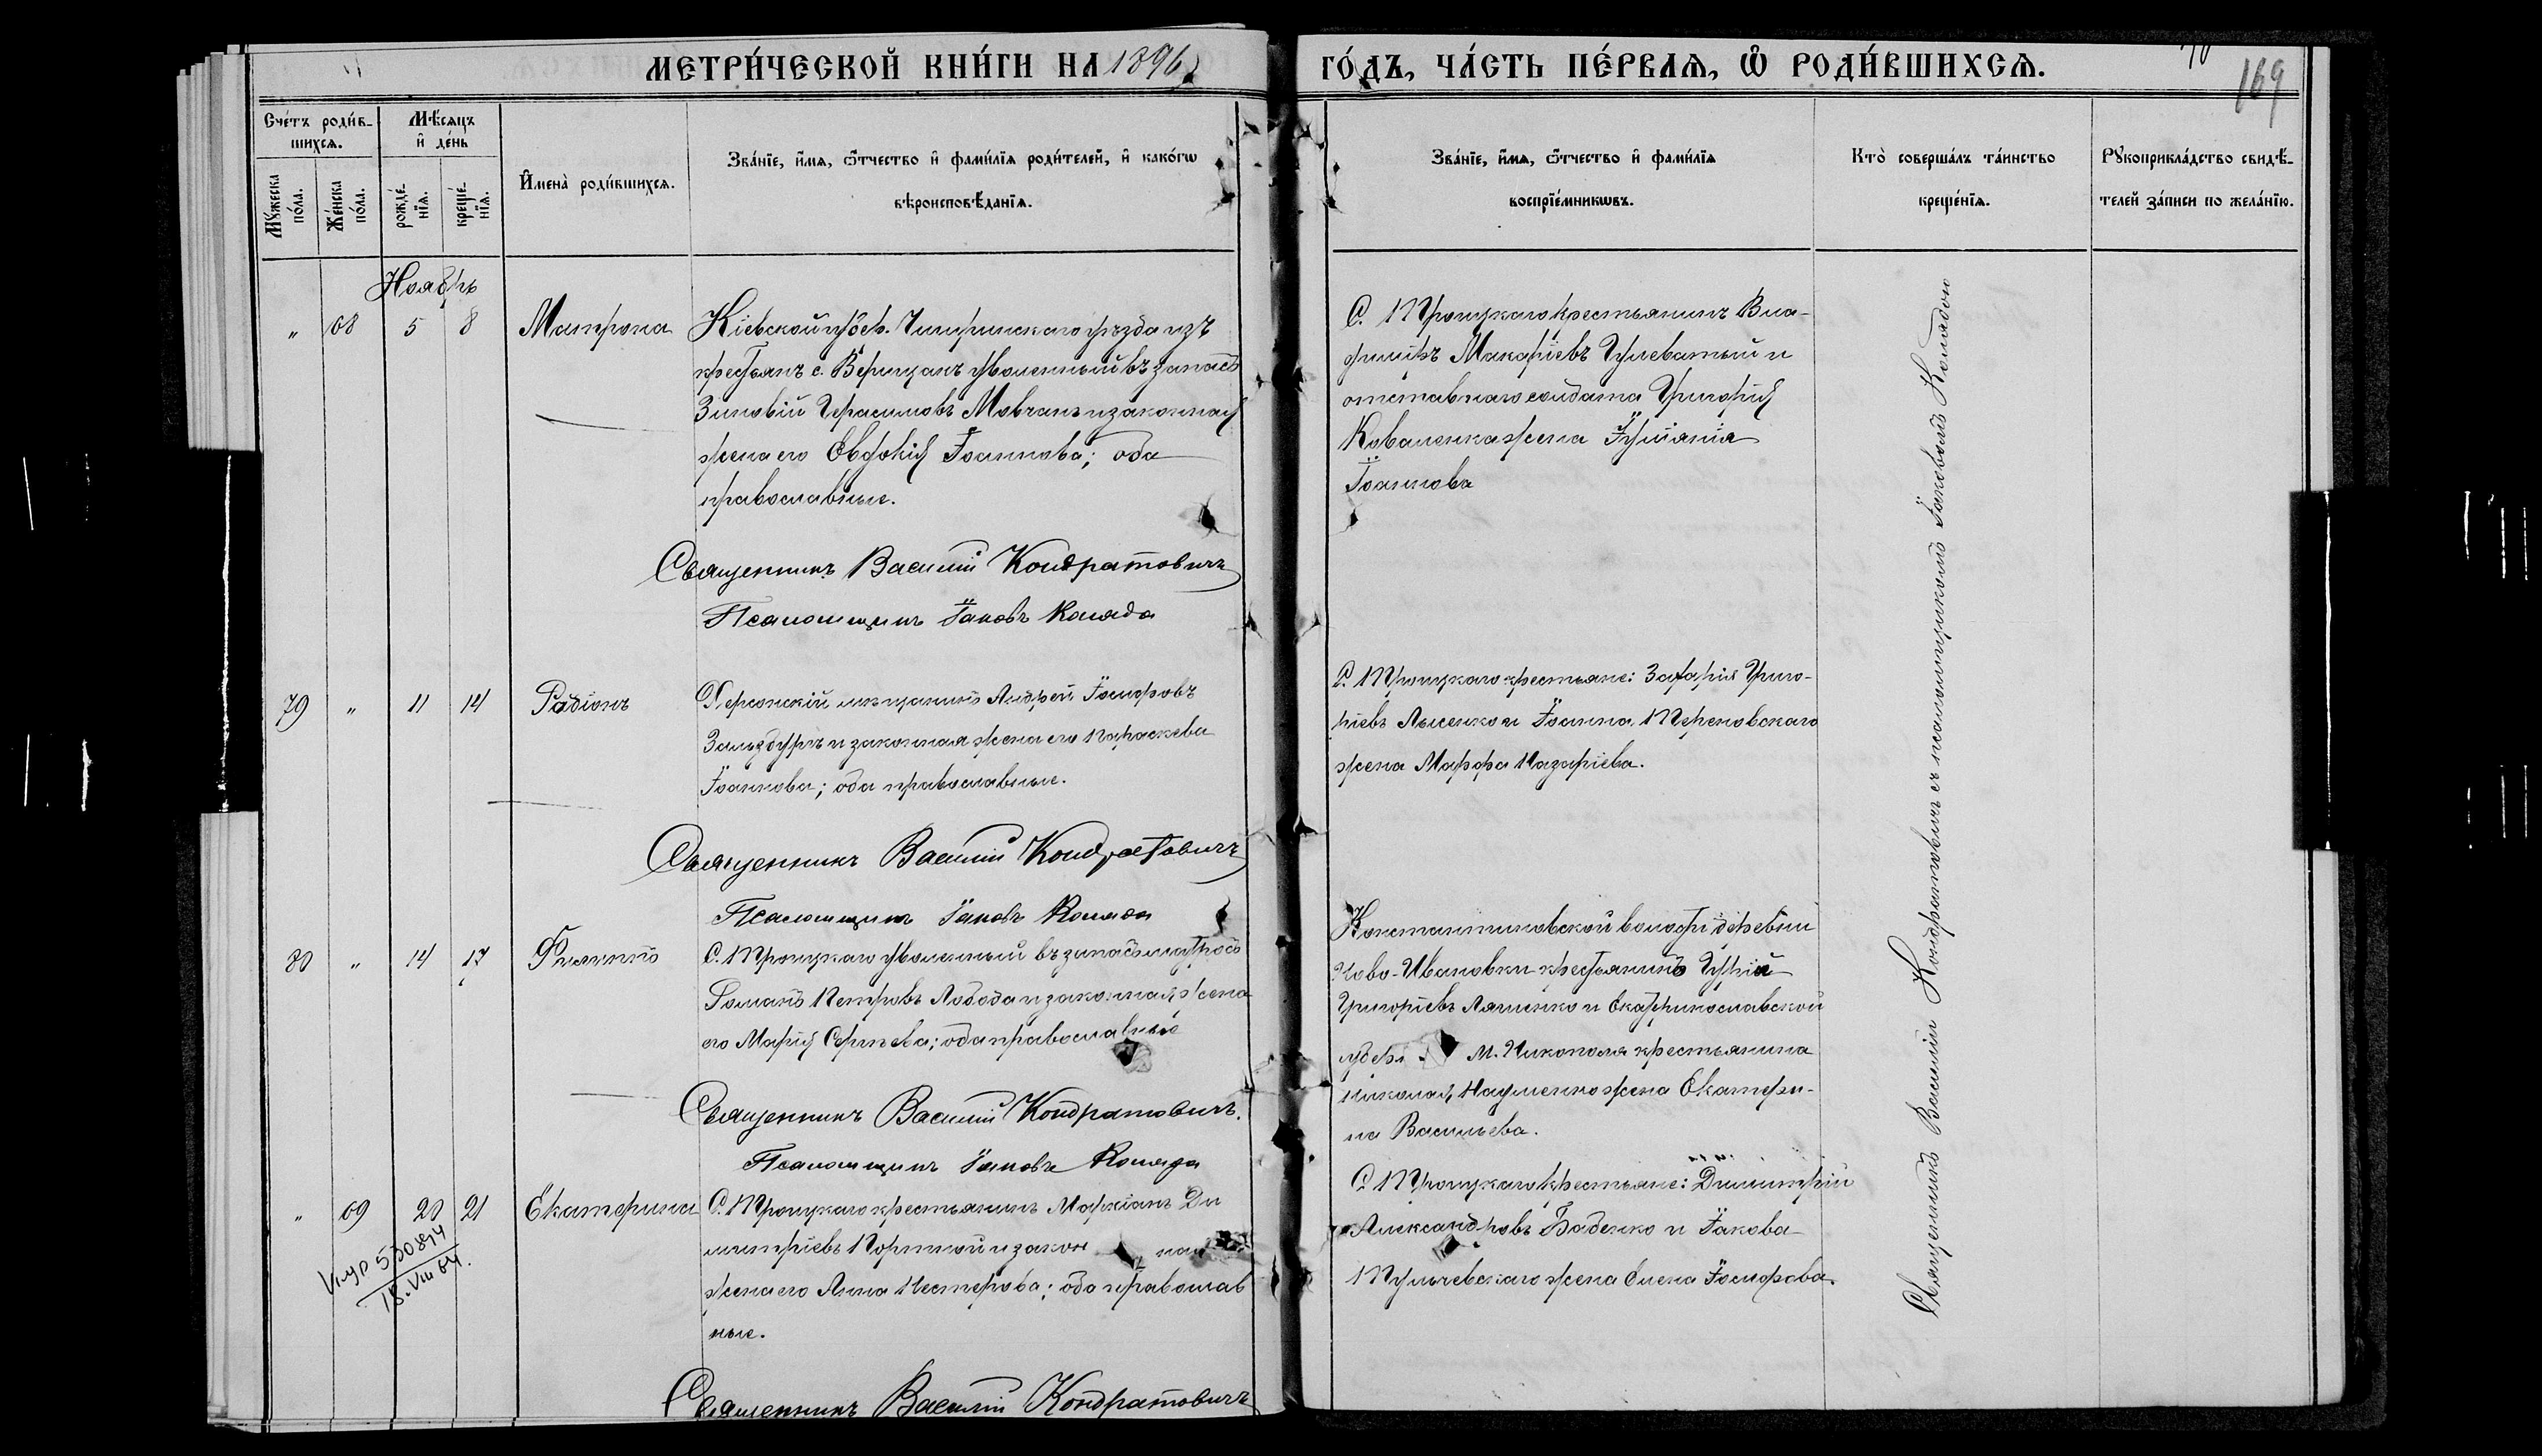 МЕТРИ́ЧЕСКОЙ КНИ́ГИ НА 1896
ГО́ДЪ, ЧА́СТЬ ПЕ́РВАЯ, Ѽ РОДИ́ВШИХСЯ.
169
Сче́тъ роди́в-
шихся.
Мѣ́сяцъ
и҆ де́нь
Мꙋ́жеска
по́ла.
Же́нска
по́ла.
рожде́-
нїя.
креще́-
нїя.
И҆мена̀ роди́вшихся.
Зва́нїе, и҆́мя, ѻ҆́тчество и҆ фами́лїя роди́телей, и҆ како́гѡ
вѣроисповѣ́данїя.
Зва́нїе, и҆́мя, ѻ҆́тчество и҆ фами́лїя
воспрїе́мникѡвъ.
Кто̀ соверша́лъ та́инство
креще́нїя.
Рꙋкоприкла́дство свидѣ́-
телей за́писи по жела́нїю.
Ноябрь
" 68 5 8 Матрона
Кіевской губер. Чигиринскаго уѣзда изъ
крестьянъ с. Вершацъ уволенный въ запасъ
Зиновій Герасимовъ Мовчанъ и законная
жена его Евдокія Іоаннова; оба
православные.
Священникъ Василій Кондратовичъ
Псаломщикъ Іаковъ Коляда
С. Троицкаго крестьянинъ
Макаріевъ Гулеватый и
отставнаго солдата Григорія
Коваленка жена Іуліанія
Іоаннова
79 " 11 14 Радіонъ
Херсонскій мѣщанинъ Андрей Іосифовъ
Зальцбургъ и законная жена его Параскева
Іоаннова; оба православные.
Священникъ Василій Кондратовичъ
Псаломщикъ Іаковъ Коляда
С. Троицкаго крестьяне: Захарія Григо-
ріевъ Лысенко и Іоанна Терновскаго
жена Марфа Назаріева.
80 " 14 17 Филиппъ
С. Троицкаго уволенный въ запасъ матросъ
Романъ Петровъ Лобода и законная жена
его Марія Сергѣева; оба православные
Священникъ Василій Кондратовичъ.
Псаломщикъ Іаковъ Коляда
Константиновской волости деревни
Ново-Ивановки крестьянинъ Гурій
Григоріевъ Ляшенко и Екатеринославской
губер. м. Никополя крестьянина
Николая Науменко жена Екатери-
на Васильева.
" 69 20 21 Екатерина
С. Троицкаго крестьянинъ Маркіанъ Ди
митріевъ Портной и закон ная
жена его Анна Нестерова; оба православ
ные.
Священникъ Василій Кондратовичъ
С. Троицкаго крестьяне: Димитрій
Александровъ Бабенко и Іакова
Тульчевскаго жена Елена Іосифова.
530874
18.VIII 64.
Священникъ Василій Кондратовичъ съ псаломщикомъ Іаковомъ Колядою